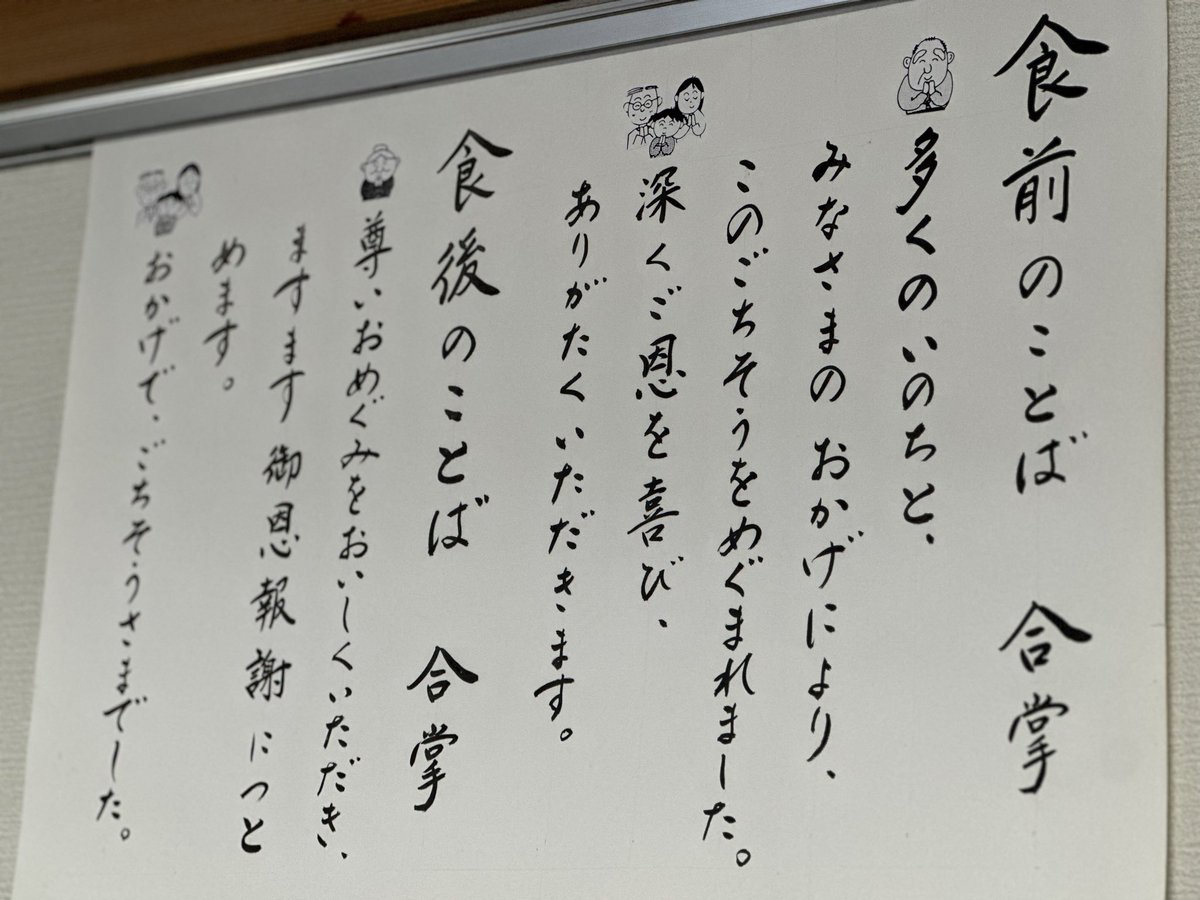 食前のことば 合掌
多くのいのちと、
みなさまの おかげにより、
このごちそうをめぐまれました。
深くご恩を喜び、
ありがたくいただきます。
食後のことば 合掌
尊いおめぐみをおいしくいただき、
ますます 御恩報謝 につと
めます。
おかげで、ごちそうさまでした。